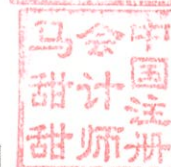 中国注册
会计师
马甜甜